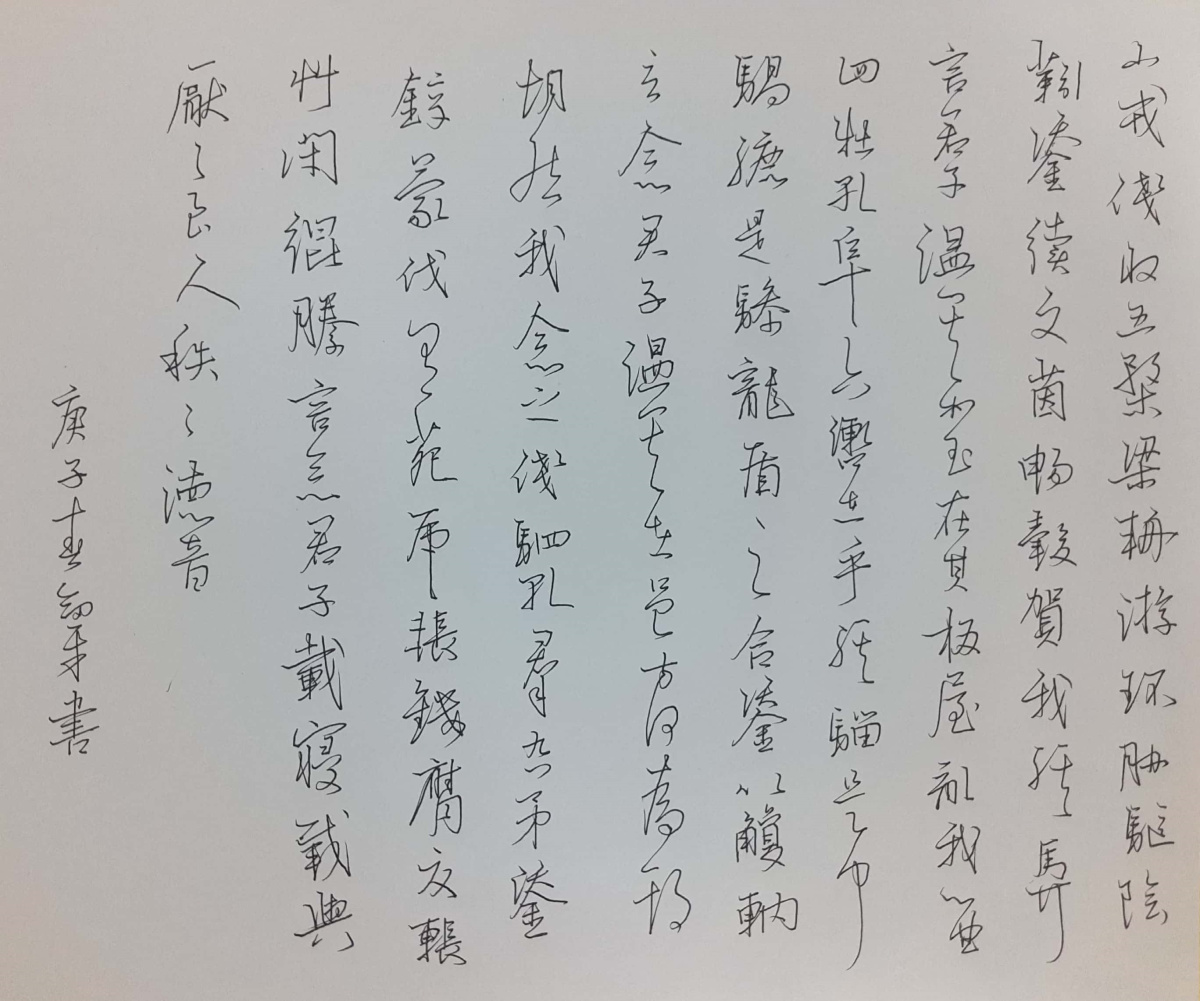 小戎俴收五楘梁輈游环脅驅陰
靷鋈續文茵暢轂賀我騏馵
言君子溫其如玉在其板屋亂我心曲
四牡孔阜六轡在手騏騮是中
騧驪是驂龍盾之合鋈以觼軜
言念君子溫其在邑方何為期
胡然我念之俴駟孔羣厹矛鋈
錞蒙伐有苑虎韔鏤膺交韔
竹閉緄縢言念君子載寢載興
厭々良人秩々德音
庚子春書